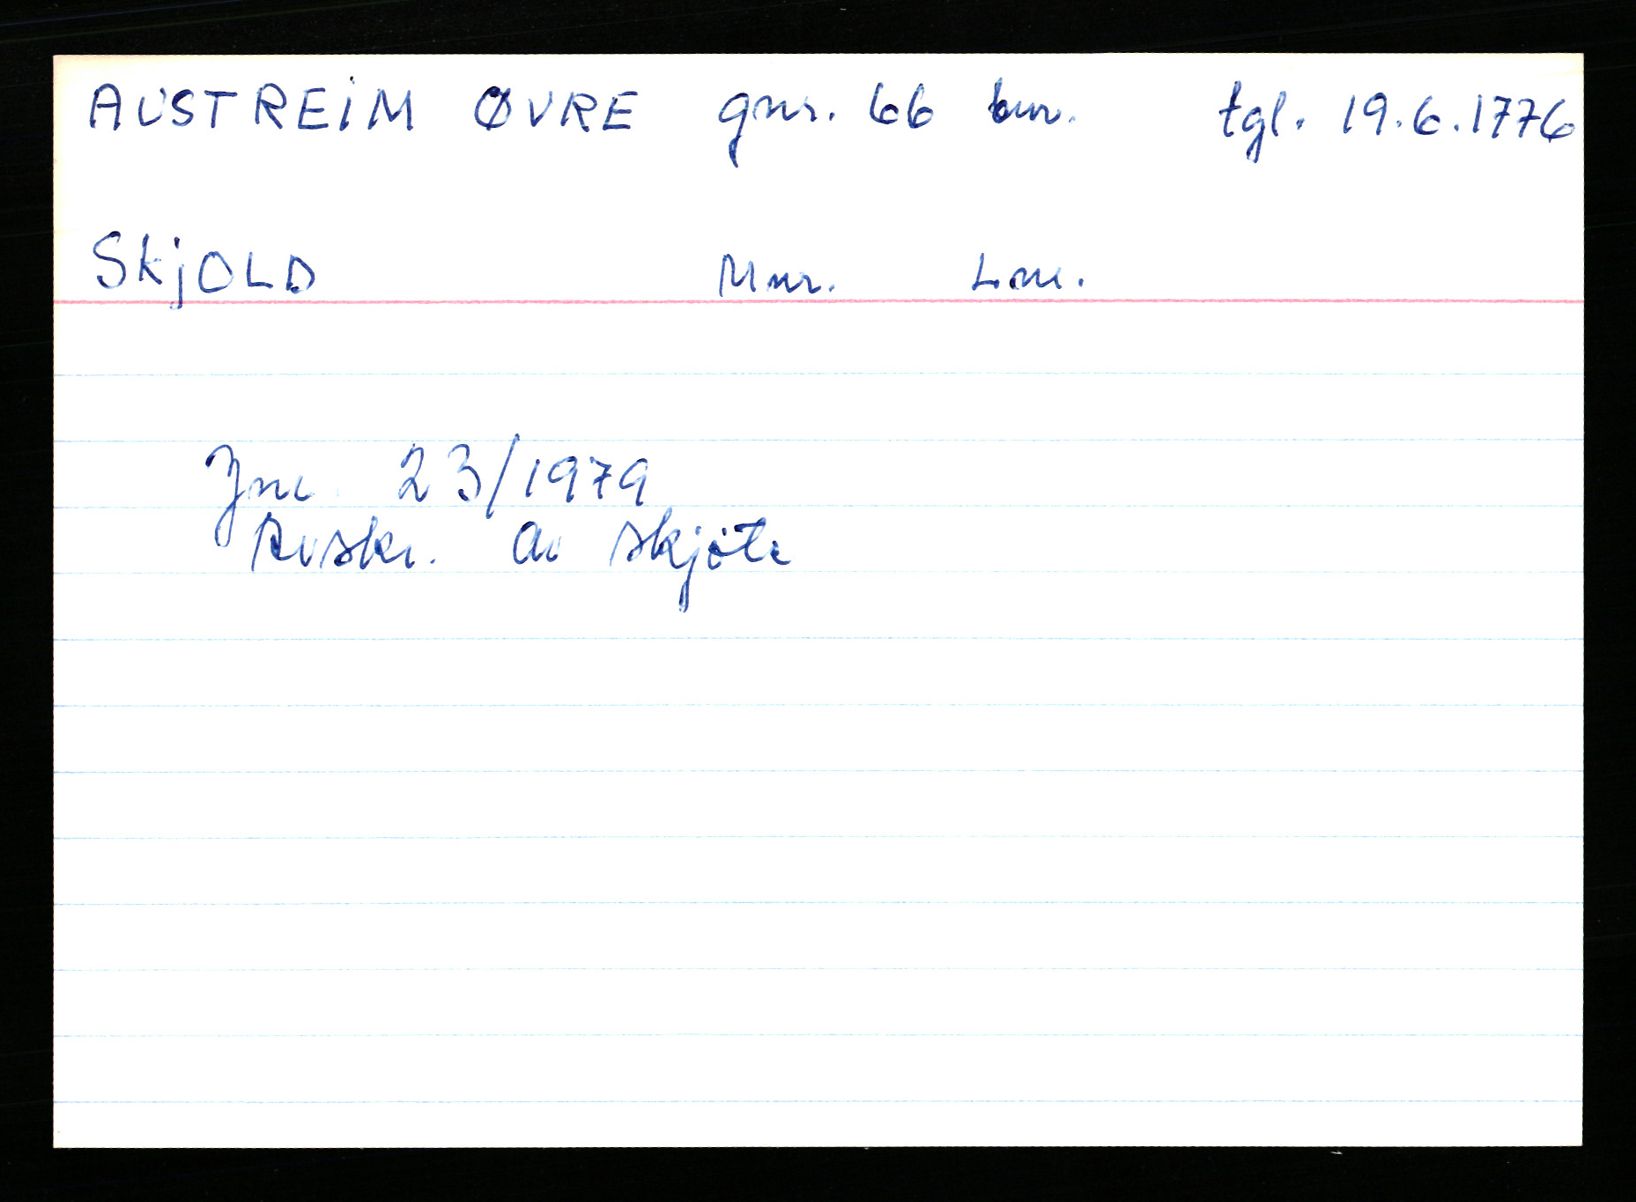 AUSTREIM ØVRE gnr. 66 bnr. tgl. 19.6.1776
SKjOLD Mnr. Lnr.
Jnr. 23/1979
Avskr. av skjöte